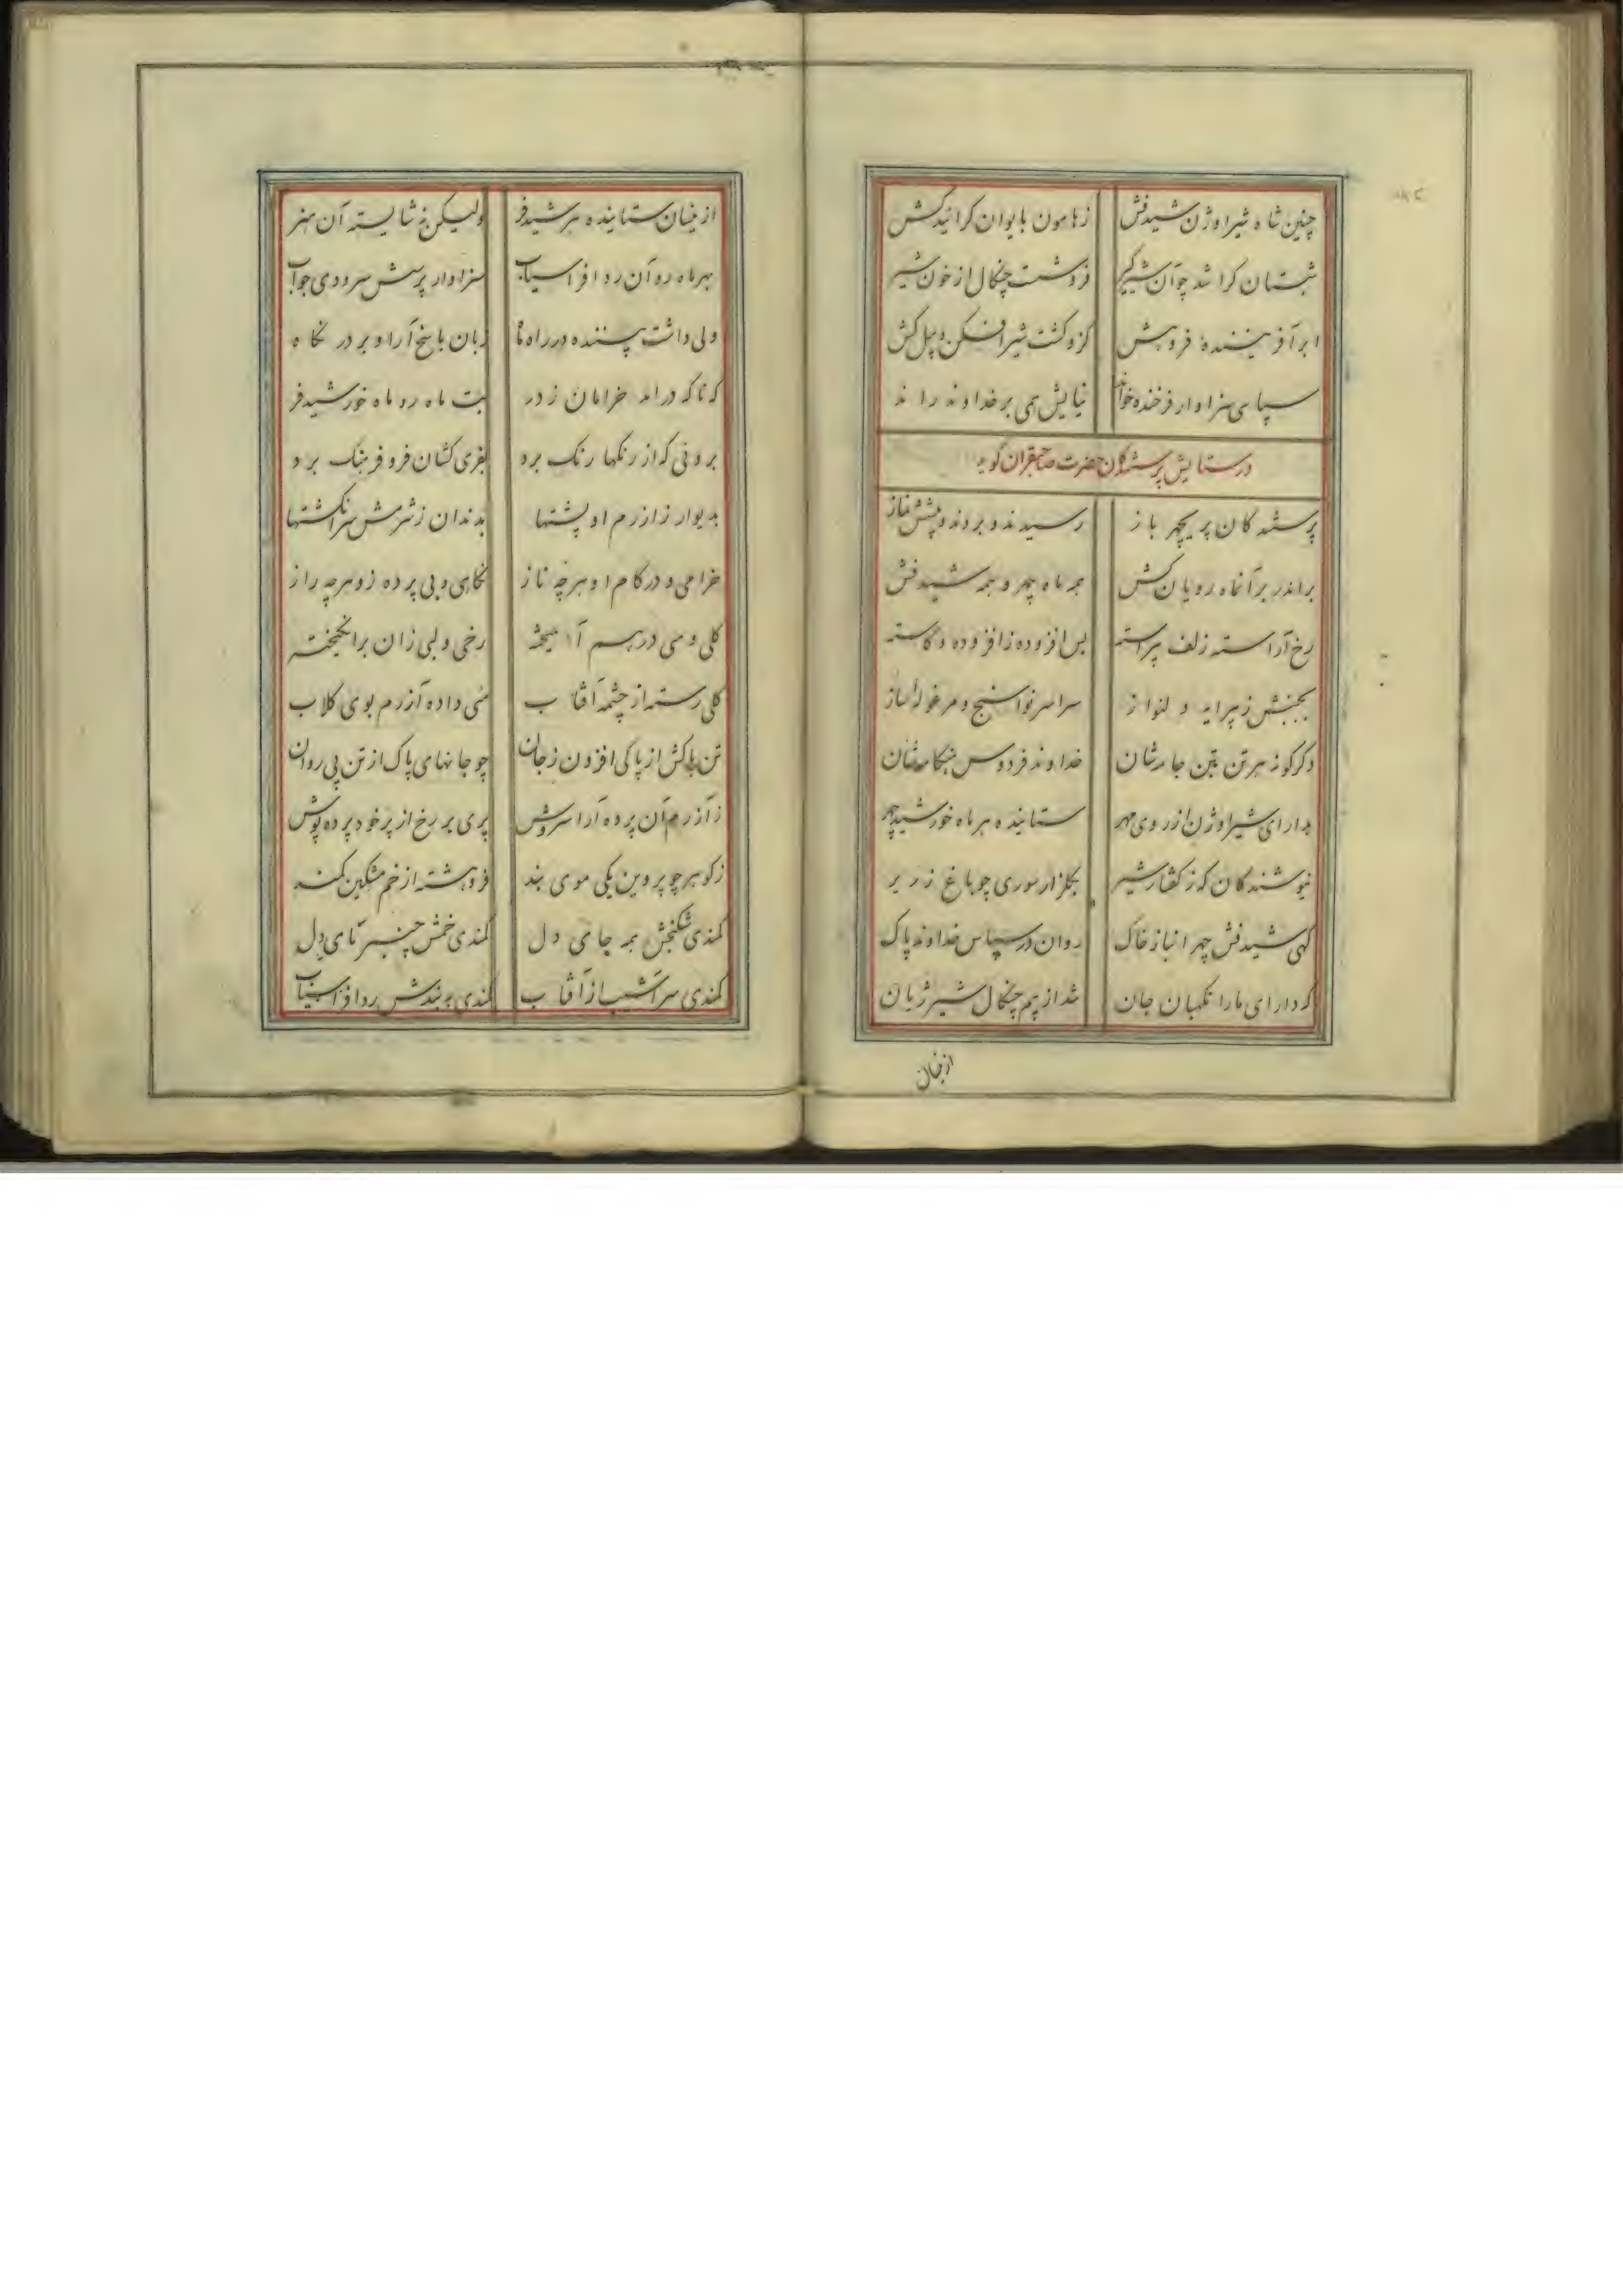 چنین شاه شیراوژن شیدفش زهامون بایوان کرانید کش
شبستان کرا شد چو آن شیرگیر فروشست چنگال از خون شیر
ابر آفریننده فروهش کزو گشت شیر افکن و پیل کش
سپاسی سزاوار فرخنده خواند نیایش همی بر خداوند راند
در ستایش پرستندگان حضرت صاحبقران گوید
پرستندگان پریچهر باز رسیدند و بردند پیشش نماز
براندر بر آنماه رویان کش همه ماه چهر و همه شیدفش
رخ آراسته زلف پیراسته بس افزوده زافزوده و کاسته
بجنبش ز پیرایه دلنواز سراسر نواسنج و مرغوله ساز
دگرگونه هر تن بتن جامه شان خداوند فردوس هنگامه شان
بدارای شیراوژن از روی مهر ستاینده هر ماه خورشید چهر
نیوشندگان کز گفتار شیر بگلزار سوری چو باغ زریر
گهی شیدفش چهر انباز خاک روان در سپاس خداوند پاک
که دارای ما را نگهبان جان شد از بیم چنگال شیر ژیان
ازینسان
ازینسان ستاینده هر شیدفر ولیکن نه شایسته آن هنر
بهر ماه رو آن رد افراسیاب سزاوار پرسش سرودی جواب
ولی داشت بیننده در راه ماه زبان پاسخ آرا و بر در نگاه
که ناگه درآمد خرامان ز در بت ماه رو ماه خورشیدفر
برونی که از رنگها رنگ برد بفری کشان فر و فرهنگ برد
بدیوار زازرم او پشتها بدندان ز شرمش سرانگشتها
خرامی و در گام او هر چه ناز نگاهی و بی پرده زو هر چه راز
گلی و می درهم آمیخته رخی و لبی زان برانگیخته
گلی رسته از چشمه آفتاب می داده آزرم بوی گلاب
تن پاکش از پاکی افزون ز جان چو جانهای پاک از تن پی روان
ز آزرم آن پرده آرا سروش پری بر رخ از پر خود پرده پوش
ز گوهر چو پروین یکی موی بند فروهشته از خم مشکین کمند
کمندی شکنجش همه جای دل کمندی خمش چنبر پای دل
کمندی سرآشیب از آفتاب کمندی به بندش رد افراسیاب